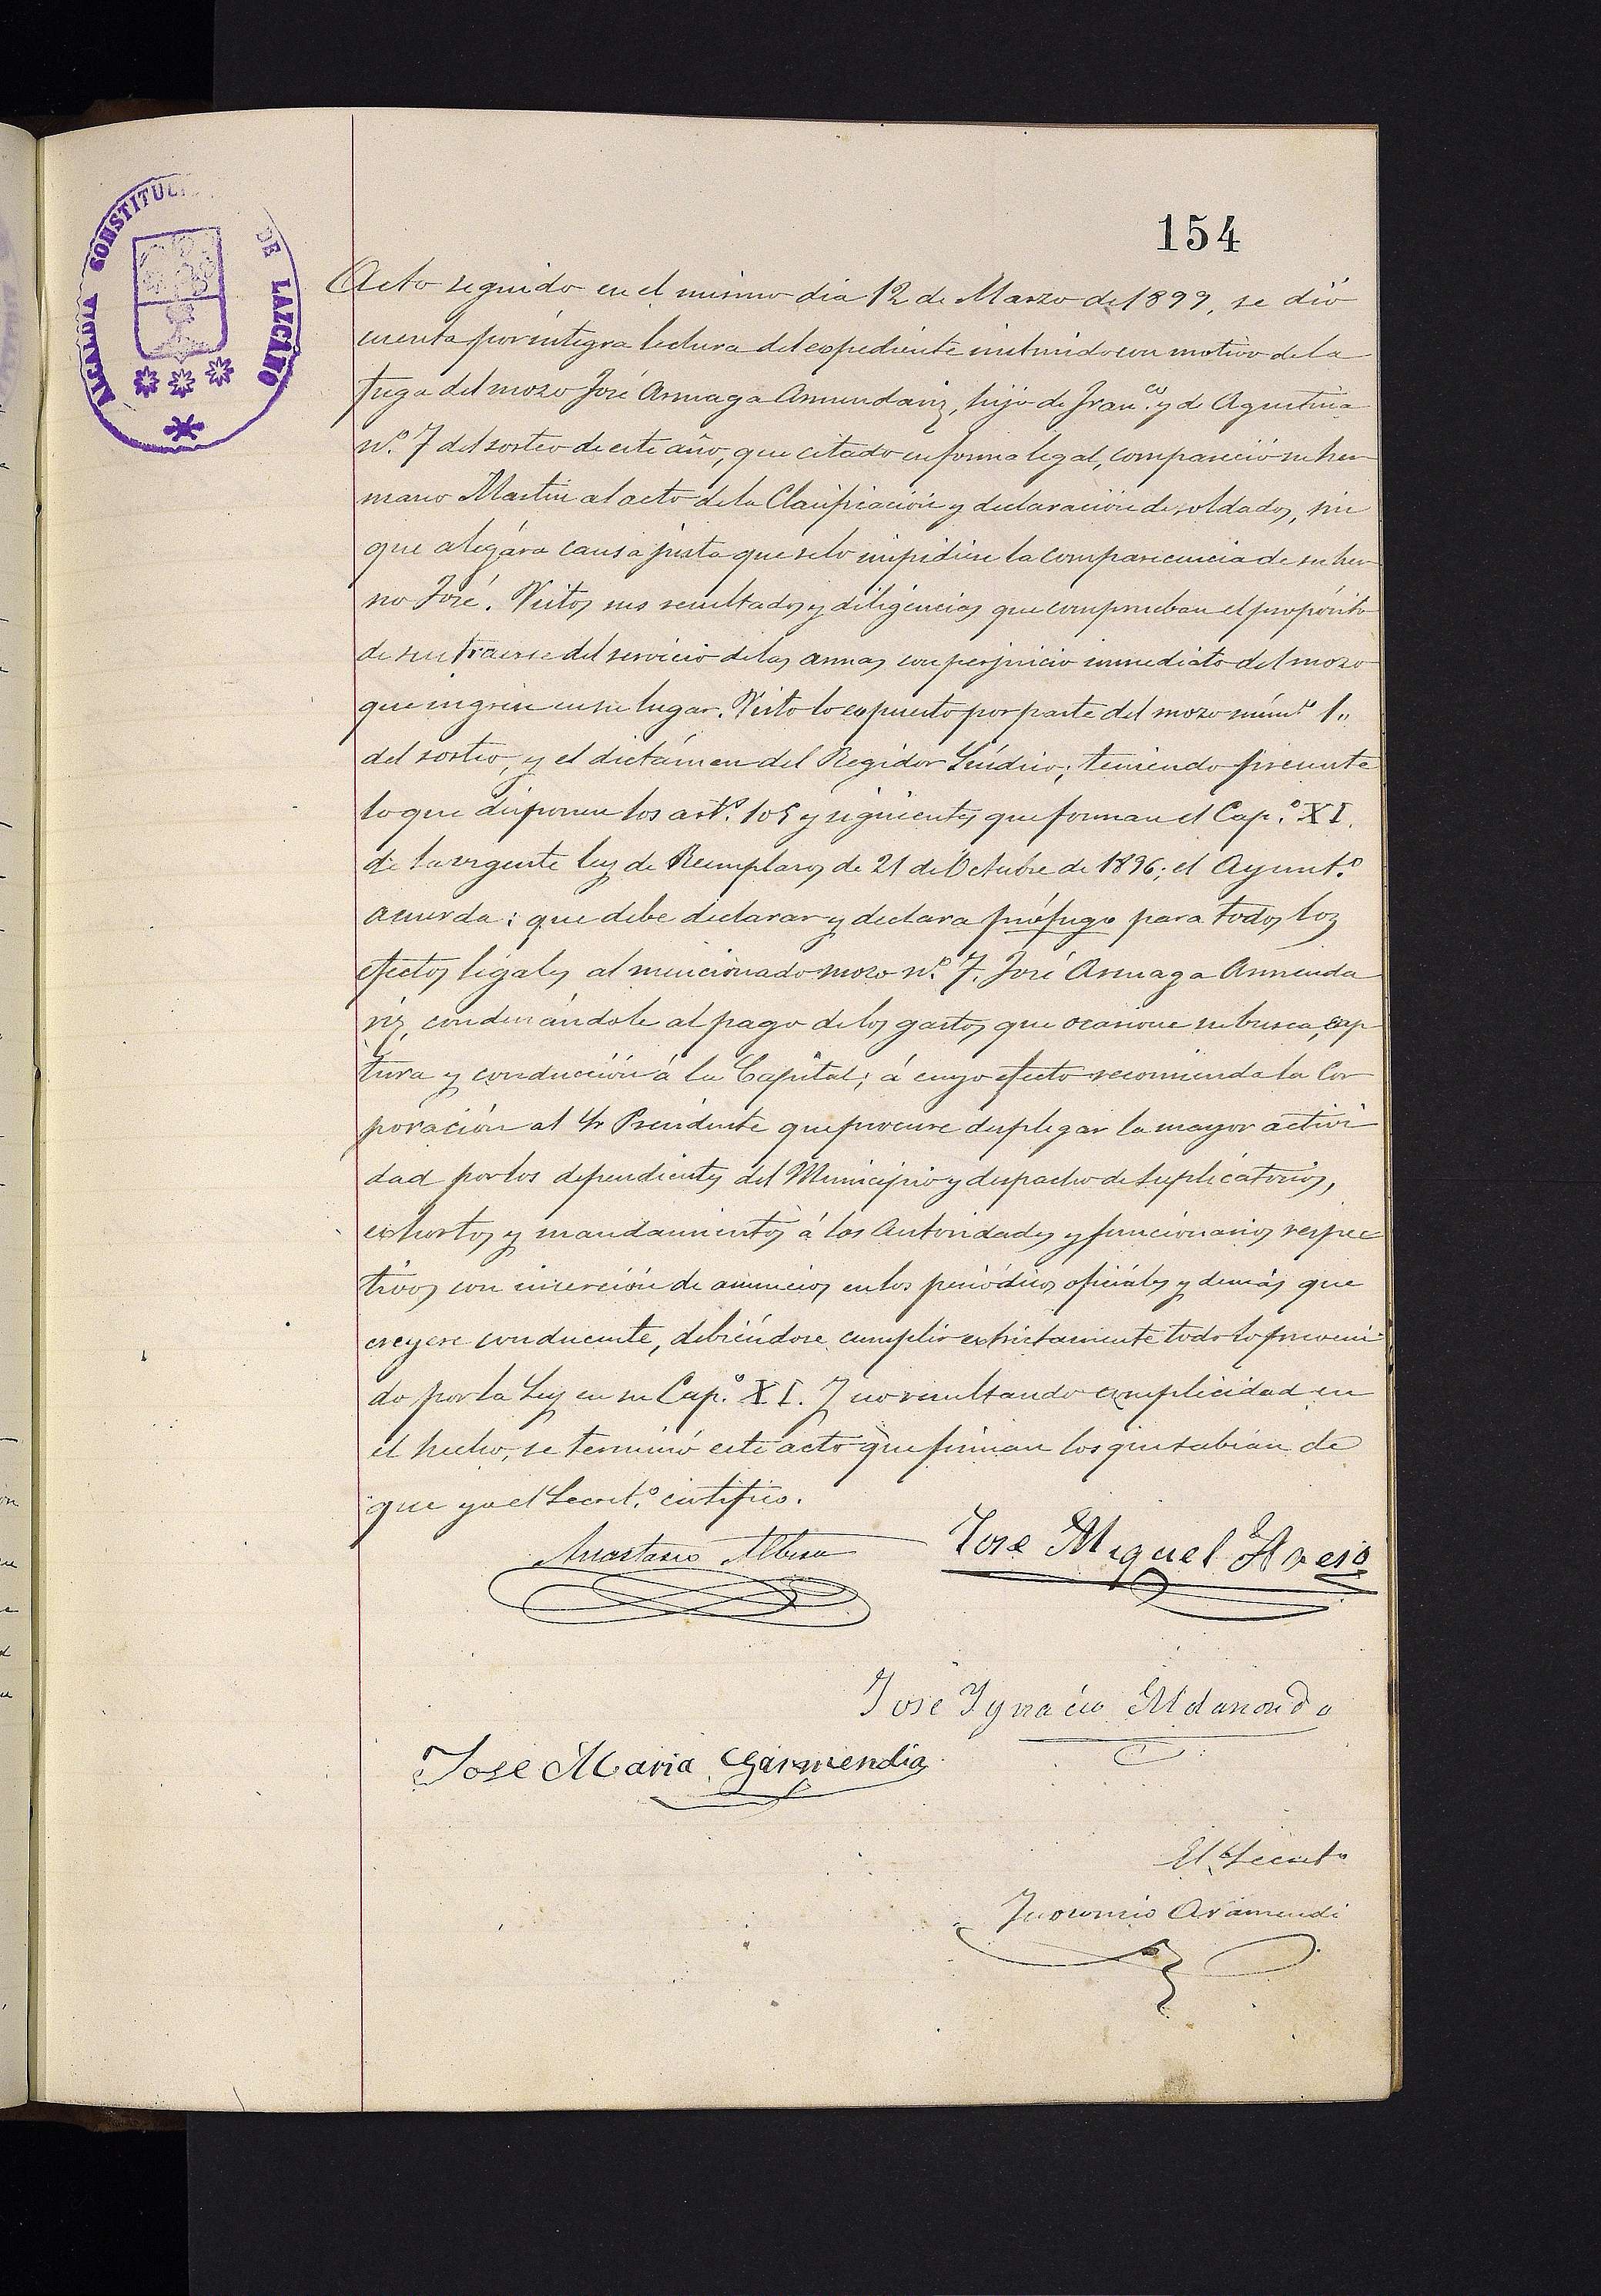 154
ALCALDIA CONSTITUC DE LAZCANO
Acto seguido en el mismo dia 12 de Marzo de 1899, se dió
cuenta por íntegra lectura del expediente instruido con motivo de la
fuga del mozo José Arruaga Armendariz, hijo de Fran.co y de Agustina
n.º 7 del sorteo de este año, que citado en forma legal, compareció su her
mano Martin al acto de la Clasificación y declaración de soldados, sin
que alegára causa justa que se lo impidiese la comparecencia de su her
no José. Vistos sus resultados y diligencias que comprueban el propósito
de sustraerse del servicio de las armas con perjuicio inmediato del mozo
que ingrese en su lugar. Visto lo expuesto por parte del mozo núm.º 1"
del sorteo, y el dictámen del Regidor Síndico; teniendo presente
lo que disponen los art.s 105 y siguientes que forman el Cap.º XI.
de la vigente ley de Reemplazos de 21 de Octubre de 1896; el Ayunt.º
acuerda: que debe declarar y declara prófugo para todos los
efectos legales al mencionado mozo n.º 7. José Arruaga Armenda
riz, condenándole al pago de los gastos que ocasione su busca, cap
tura y conducción á la Capital; á cuyo efecto recomienda la Cor
poración al Sr Presidente que procure desplegar la mayor activi
dad por los dependientes del Municipio y despacho de suplicatorios,
exhortos y mandamientos á las Autoridades y funcionarios respec
tivos con inserción de anuncios en los periódicos oficiales y demás que
creyere conducente, debiéndose cumplir estrictamente todo lo preveni
do por la Ley en su Cap.º XI. Y no resultando complicidad en
el hecho, se terminó este acto que firman los que sabían de
que yo el Secret.º certifico.
Anastasio Albisu
Jose Miguel
Jose Ygnacio Aldanondo
Jose Maria Garmendia
El Secret.º
Aramendi